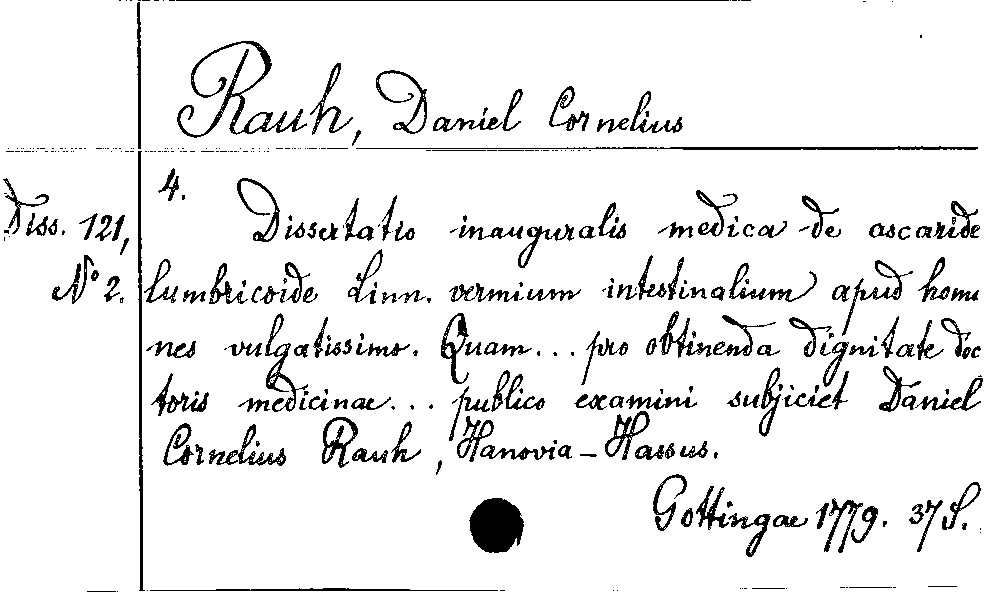 Rauh, Daniel Cornelius
4.
Diss. 121,
No 2.
Dissertatio inauguralis medica de ascaride
lumbricoide Linn. vermium intestinalium apud homi
nes vulgatissimo. Quam... pro obtinenda dignitate doc
toris medicinae... publico examini subjiciet Daniel
Cornelius Rauh, Hanovia-Hassus.
Gottingae 1779. 37 S.